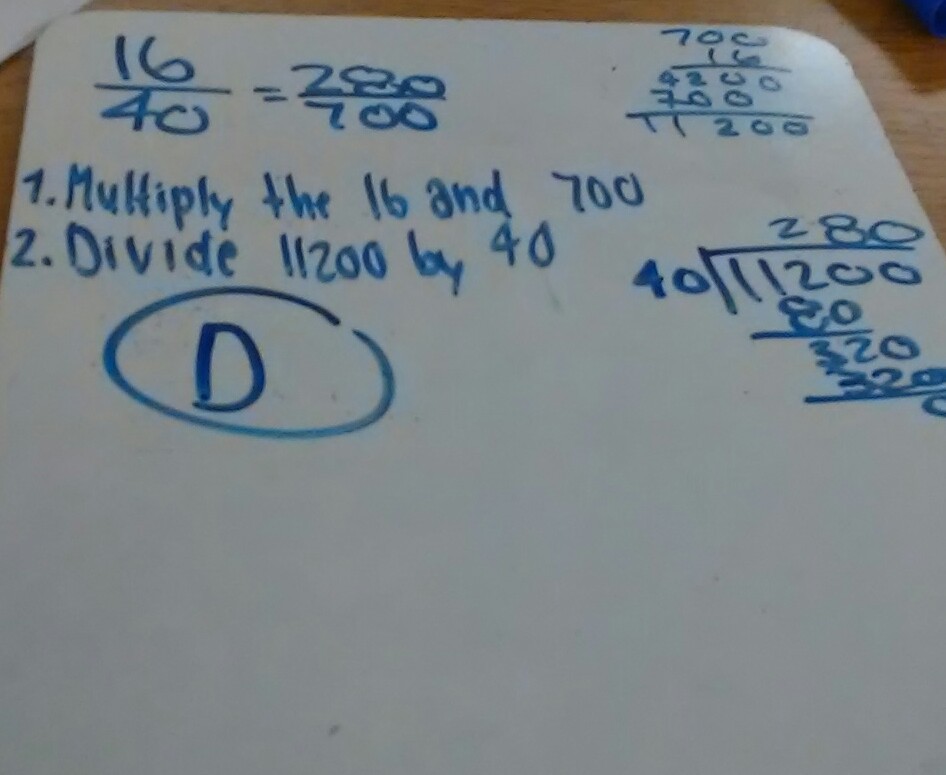 16
40
=
280
700
700
16
4200
700
11200
1. Multiply the 16 and 700
2. Divide 11200 by 40
D
280
40 11200
80
320
320
0